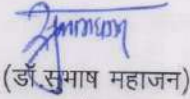 (डॉ. सुभाष महाजन)